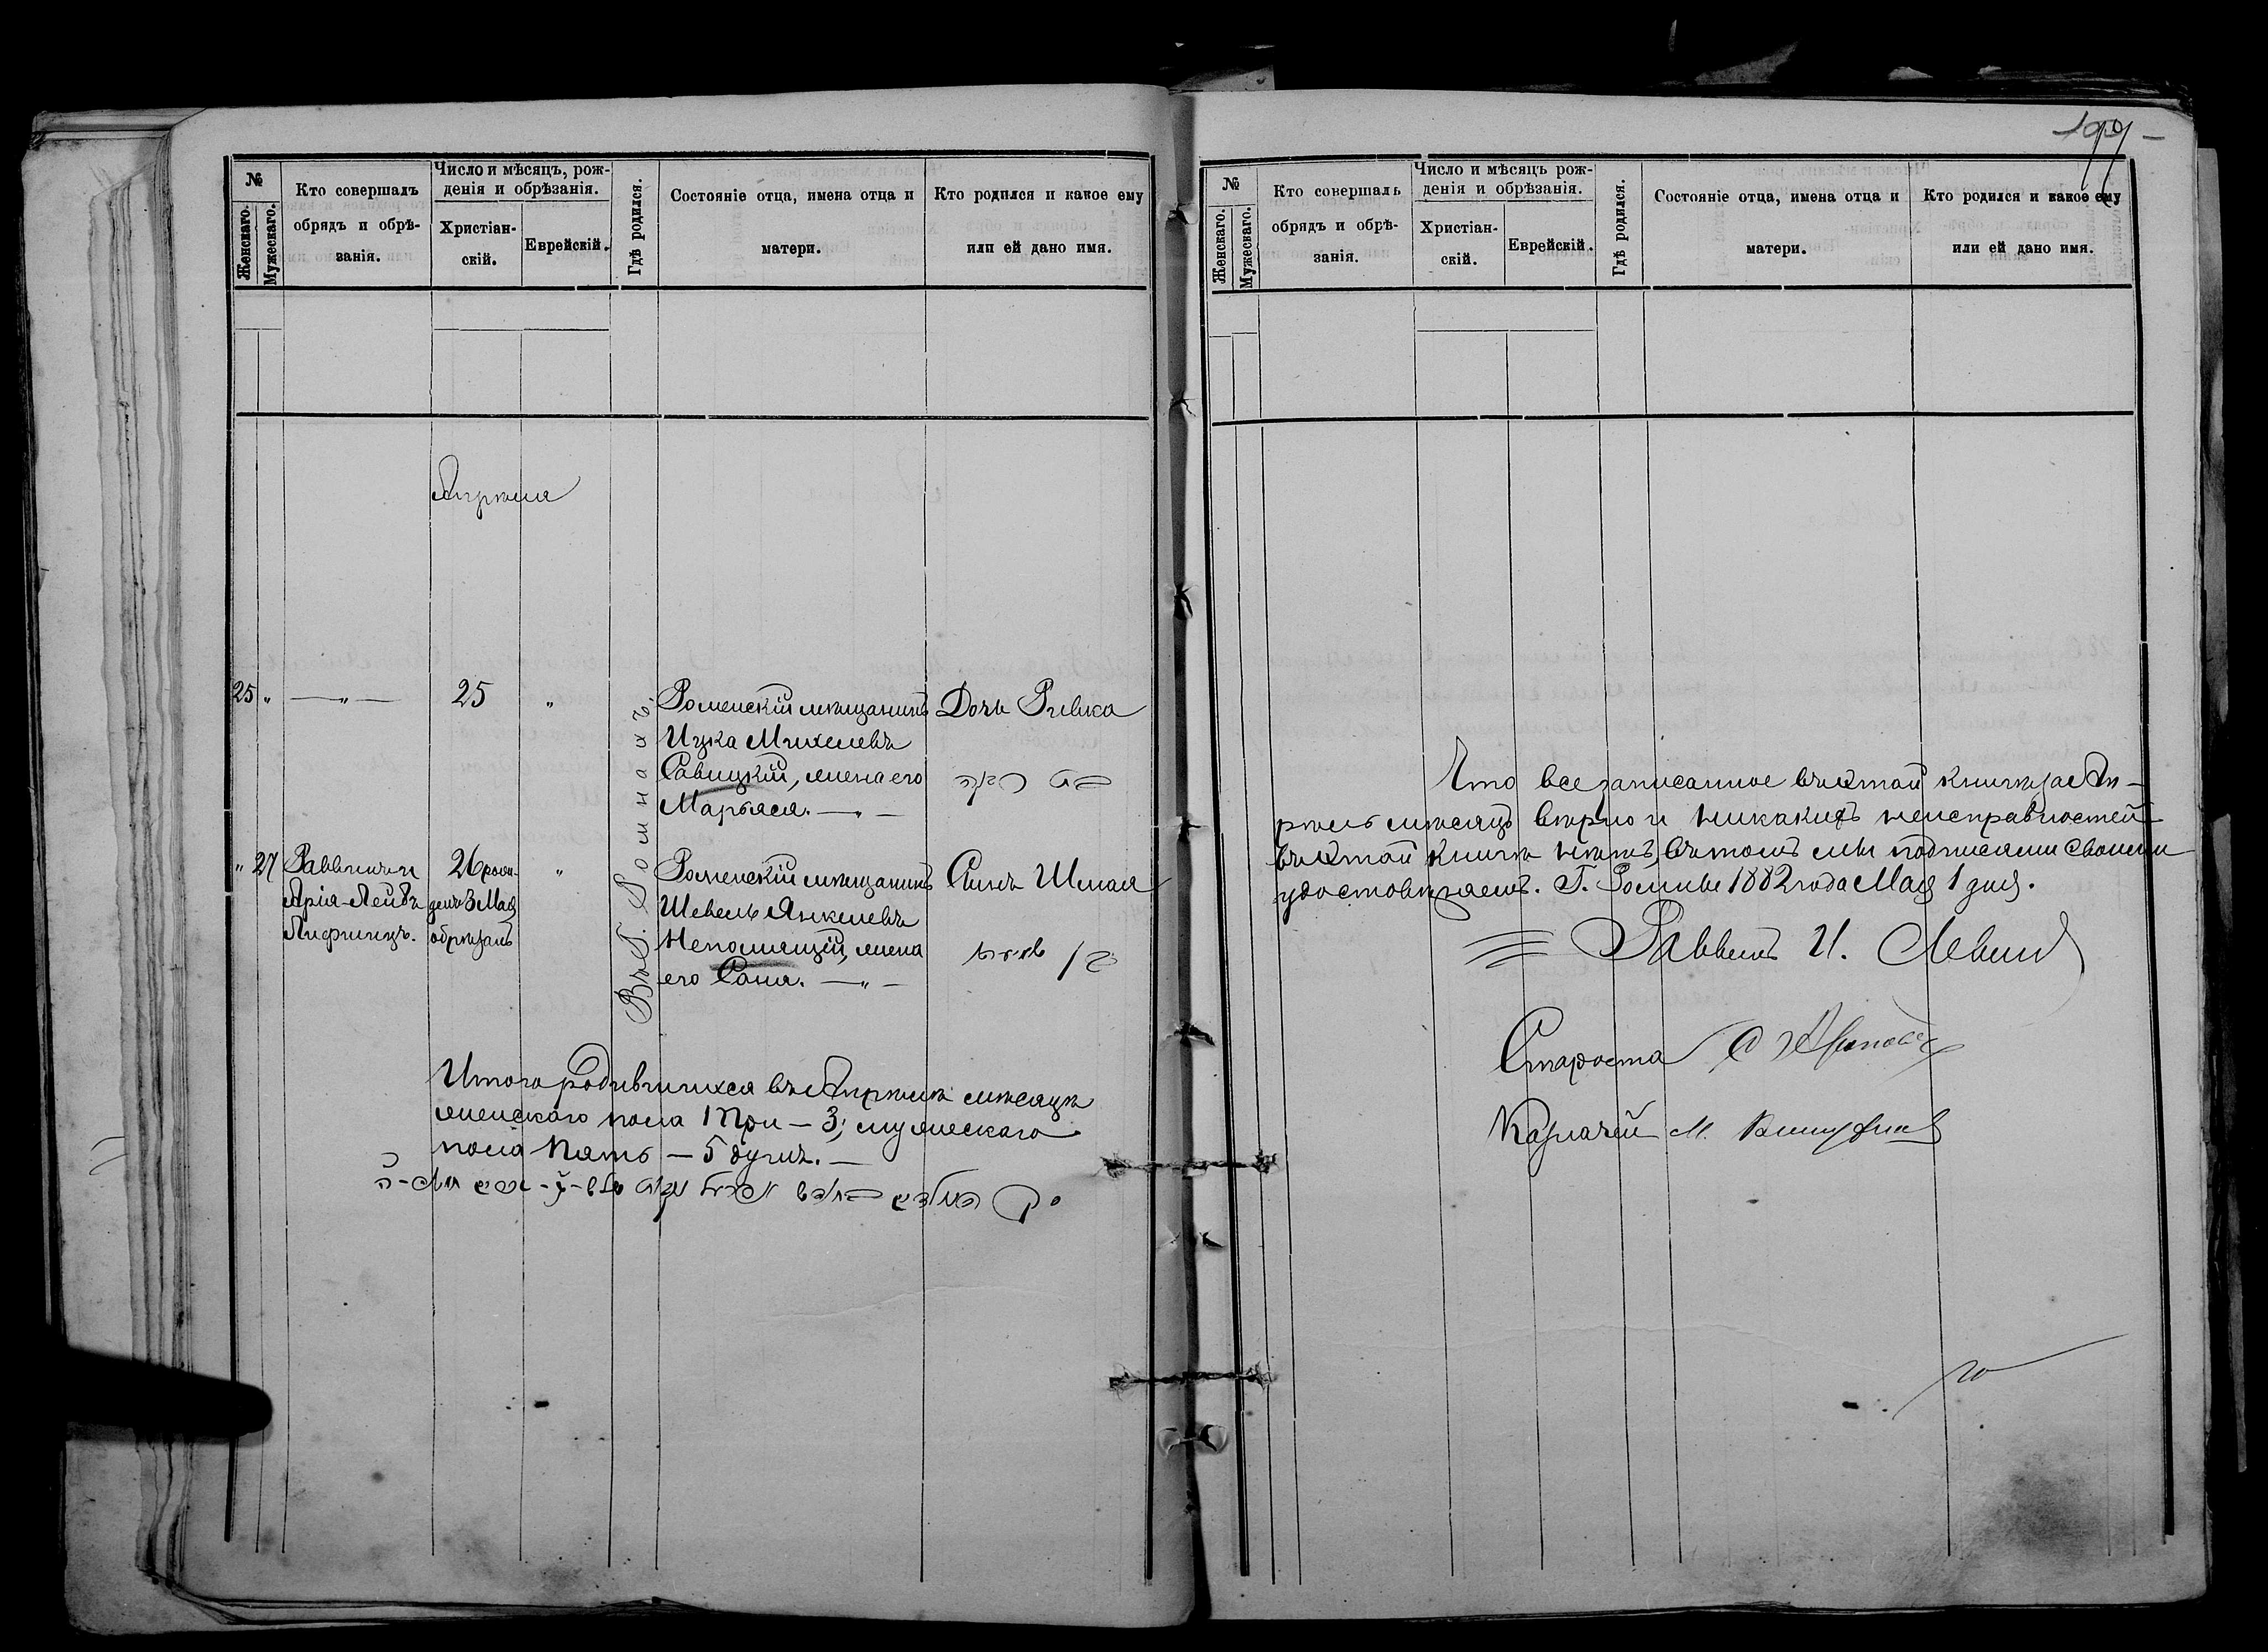 №
Женскаго.
Мужескаго.
Кто совершалъ
обрядъ и обрѣ-
занія.
Число и мѣсяцъ, рож-
денія и обрѣзанія.
Христіан-
скій.
Еврейскій.
Гдѣ родился.
Состояніе отца, имена отца и
матери.
Кто родился и какое ему
или ей дано имя.
Апрѣля
25 " — " — 25 "
Въ Г. Ромнахъ.
Роменскій мѣщанинъ
Ицка Михелевъ
Савицкій, жена его
Марьяся. — " —
Дочь Ривка
בת רבקה
" 27
Раввинъ и
Арія-Лейбъ
26 рож-
денъ 3 Мая
обрѣзанъ
"
Роменскій мѣщанинъ
Шевель Янкелевъ
Непомящій, жена
его Соня. — " —
Сынъ Шмая
בן
Итого родившихся въ Апрѣлѣ мѣсяцѣ
женскаго пола три — 3; мужескаго
пола пять — 5 душъ. —
№
Женскаго.
Мужескаго.
Кто совершалъ
обрядъ и обрѣ-
занія.
Число и мѣсяцъ рож-
денія и обрѣзанія.
Христіан-
скій.
Еврейскій.
Гдѣ родился.
Состояніе отца, имена отца и
матери.
Кто родился и какое ему
или ей дано имя.
Что все записанное въ этой книгѣ за Ап-
рѣль мѣсяцъ вѣрно и никакихъ неисправностей
въ этой книгѣ нѣтъ, въ томъ мы подписями своими
удостовѣряемъ. Г. Ромны 1882 года Мая 1 дня.
Раввинъ И. Левин
Староста
Казначей М.